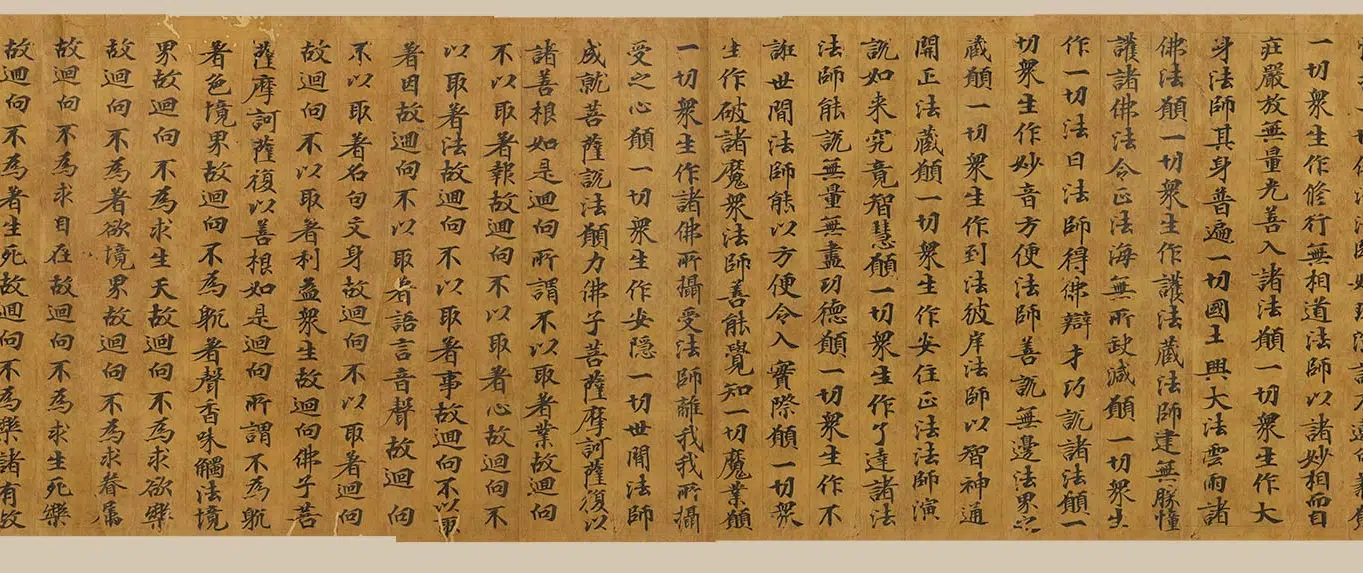 一切衆生作修行無相道法師以諸妙相而自
莊嚴放無量光善入諸法願一切衆生作大
身法師其身普遍一切國土興大法雲雨諸
佛法願一切衆生作護法藏法師建無勝幢
護諸佛法令正法海無所缺減願一切衆生
作一切法日法師得佛辯才巧説諸法願一
切衆生作妙音方便法師善説無邊法界之
藏願一切衆生作到法彼岸法師以智神通
開正法藏願一切衆生作安住正法法師演
説如来究竟智慧願一切衆生作了達諸法
法師能説無量無盡功徳願一切衆生作不
誑世間法師能以方便令入實際願一切衆
生作破諸魔衆法師善能覺知一切魔業願
一切衆生作諸佛所攝受法師離我我所攝
受之心願一切衆生作安隱一切世間法師
成就菩薩説法願力佛子菩薩摩訶薩復以
諸善根如是迴向所謂不以取著業故迴向
不以取著報故迴向不以取著心故迴向不
以取著法故迴向不以取著事故迴向不以取
著因故迴向不以取著語言音聲故迴向
不以取著名句文身故迴向不以取著迴向
故迴向不以取著利益衆生故迴向佛子菩
薩摩訶薩復以善根如是迴向所謂不為躭
著色境界故迴向不為躭著聲香味觸法境
界故迴向不為求生天故迴向不為求欲樂
故迴向不為著欲境界故迴向不為求眷屬
故迴向不為求自在故迴向不為求生死樂
故迴向不為著生死故迴向不為樂諸有故